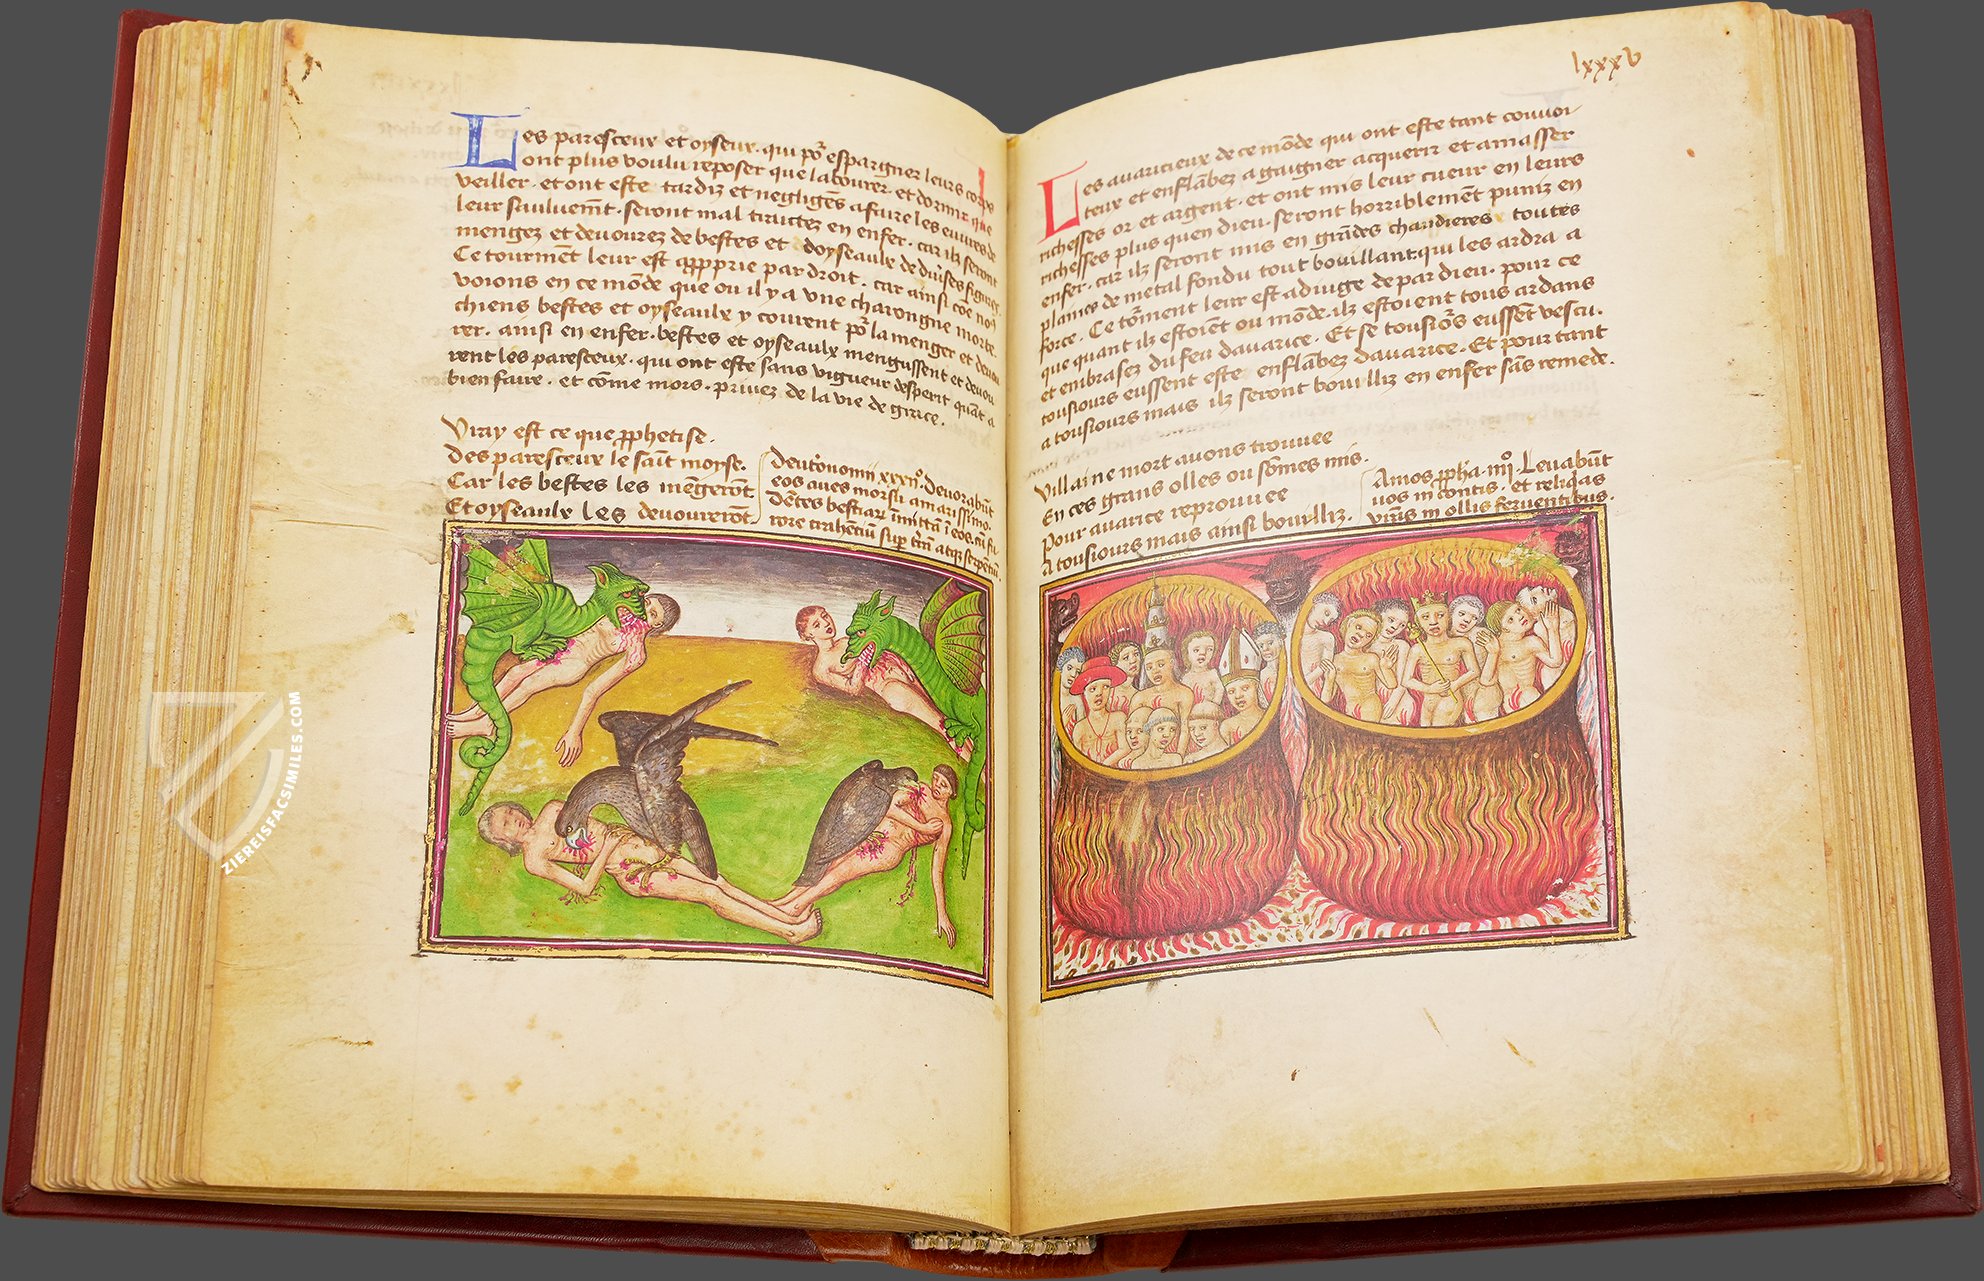 Les paresceux et oyseux. qui po᷑ espargner leurs corps
ont plus voulu reposer que labourer. et dormir que
veiller. et ont este tardiz et negligẽs a faire les euures de
leur sauluemẽt. seront mal traictez en enfer. car ilz seront
mengez et deuourez de bestes et doyseaulx de diũses figures.
Ce tourmẽt leur est approprie par droit. car ainsi cõe noꝰ
voions en ce mõde que ou il y a vne charongne morte.
chiens bestes et oyseaulx y courent po᷑ la menger et deuou
rer. ainsi en enfer. bestes et oyseaulx mengussent et deuou
rent les paresceux. qui ont este sans vigueur desperit quãt a
bien faire. et cõme mors. priuez de la vie de grace.
Vray est ce que ꝓphetise.
Des paresceux le saĩt moyse.
Car les bestes les mẽgeront
Et oyseaulx les deuoureront.
Deuterõnomii xxxii°. Deuorabũt
eos aues morsu amarissimo.
Dẽtes bestiarũ ĩmittã ĩ eos. cũ fu
rore trahẽtiũ suꝑ trã atqꝫ serpẽtiũ.
lxxxv
Les auaricieux de ce mõde qui ont este tant conuoi
teux et enflãbez a gaigner acquerir et amasser
richesses or et argent. et ont mis leur cueur en leurs
richesses plus quen dieu. seront horriblemẽt puniz en
enfer. car ilz seront mis en grãdes chaudieres toutes
plaines de metal fondu tout bouillant. qui les ardra a
force. Ce to᷑ment leur est adiuge de par dieu. pour ce
que quant ilz estoiẽt ou mõde. ilz estoient tous ardans
et embrasez du feu dauarice. Et se tousio᷑s eussẽt vescu.
tousiours eussent este enflãbez dauarice. Et pour tant
a tousiours mais ilz seront bouilliz en enfer sãs remede.
Villaine mort auons trouuee
En ces grans olles ou sõmes mis.
Pour auarice reprouuee
A tousiours mais ainsi bouilliz.
Amos ꝓpha. iiii°. Leuabũt
uos in cõtis. et reliqͥas
vr̃as in ollis feruentibus.
ZIEREISFACSIMILES.COM